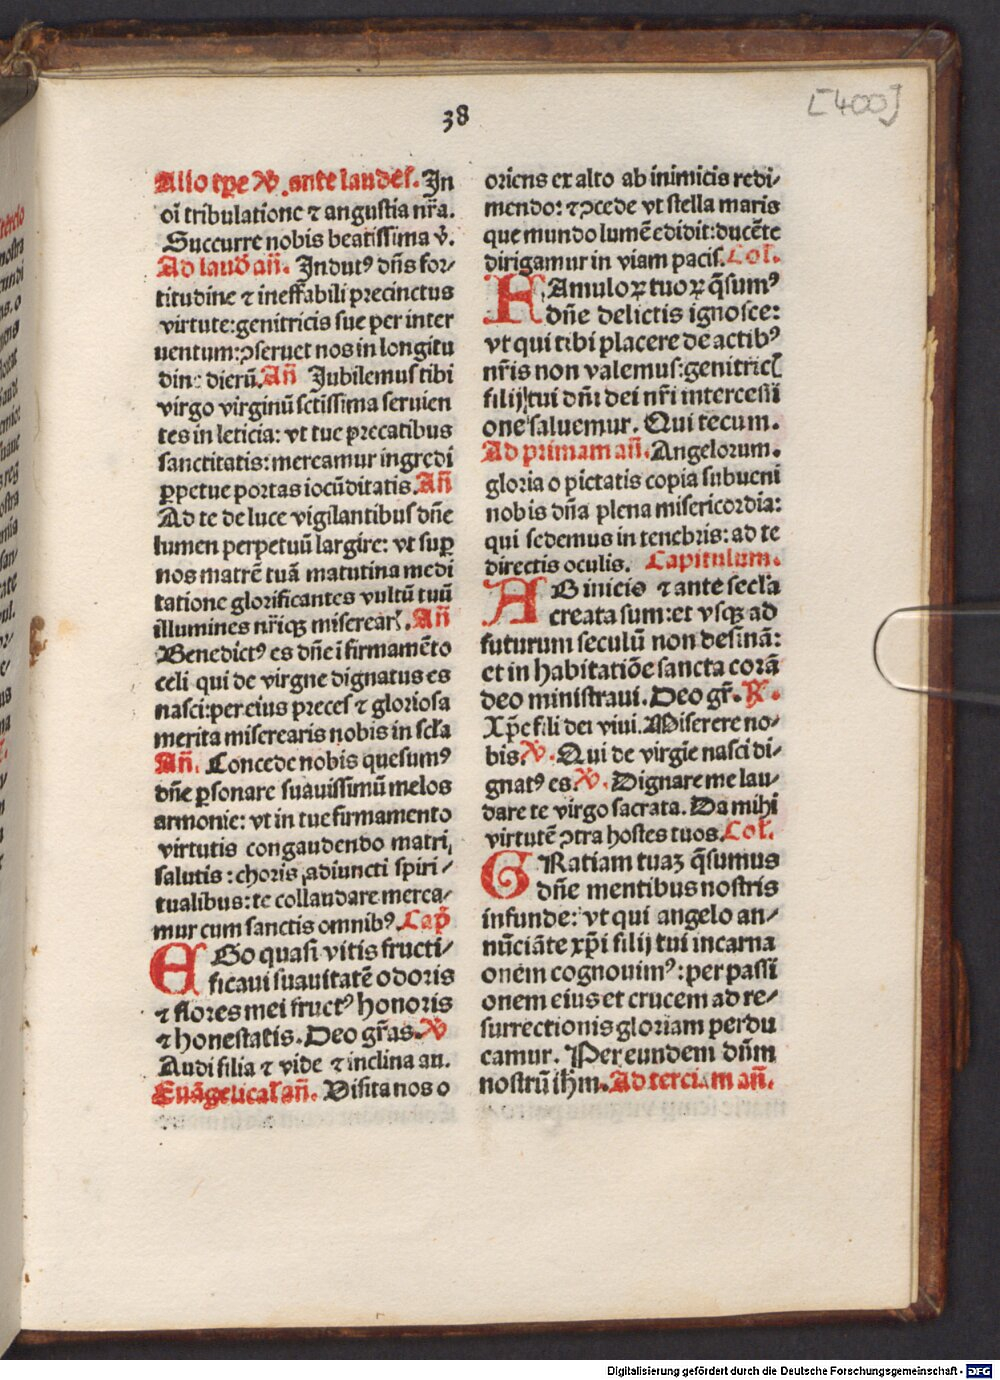 38
[400]
Alio tꝑe ℣. ante laudes. In
oı̄ tribulatione ⁊ angustia nr̄a.
Succurre nobis beatissima v̄.
Ad laud̄ an̄. Indutꝰ dn̄s for⸗
titudine ⁊ ineffabili precinctus
virtute:genitricis sue per inter
uentum:ꝯseruet nos in longitu
dine dierū.An̄ Jubilemus tibi
virgo virginū sctissima seruien
tes in leticia: vt tue precatibus
sanctitatis:mereamur ingredi
ꝑpetue portas iocūditatis.An̄
Ad te de luce vigilantibus dn̄e
lumen perpetuū largire: vt suꝑ
nos matrē tuā matutina medi
tatione glorificantes vultū tuū
illumines nr̄iqꝫ miserear̄.An̄
Benedictꝰ es dn̄e ī firmamēto
celi qui de virgne dignatus es
nasci:per eius preces ⁊ gloriosa
merita miserearis nobis in scl̄a
An̄. Concede nobis quesumꝰ
dn̄e ꝑsonare suauissimū melos
armonie: vt in tue firmamento
virtutis congaudendo matri,
salutis : choris adiuncti spiri⸗
tualibus:te collaudare merea⸗
mur cum sanctis omnibꝰ.Cap̄
EGo quasi vitis fructi⸗
ficaui suauitatē odoris
⁊ flores mei fructꝰ honoris
⁊ honestatis. Deo gr̄as.℣
Audi filia ⁊ vide ⁊ inclina au.
Euāgelical̄ an̄. Visita nos o
oriens ex alto ab inimicis redi⸗
mendo: ⁊ ꝓcede vt stella maris
que mundo lumē edidit:ducēte
dirigamur in viam pacis.Col.
FAmuloꝝ tuoꝝ q̄sumꝰ
dn̄e delictis ignosce:
vt qui tibi placere de actibꝰ
nr̄is non valemus:genitricꝭ
filij tui dn̄i dei nr̄i intercessi
one saluemur. Qui tecum.
Ad primam an̄.Angelorum.
gloria o pietatis copia subueni
nobis dn̄a plena misericordia:
qui sedemus in tenebris: ad te
directis oculis. Capitulum.
AB inicio ⁊ ante secl̄a
creata sum:et vsqꝫ ad
futurum seculū non desinā:
et in habitatiōe sancta corā
deo ministraui. Deo gr̄. ℟.
Xp̄e fili dei viui. Miserere no⸗
bis ℣. Qui de virgie nasci di⸗
gnatꝰ es ℣. Dignare me lau⸗
dare te virgo sacrata. Da mihi
virtutē ꝯtra hostes tuos.Col̄.
GRatiam tuaꝫ q̄sumus
dn̄e mentibus nostris
infunde: vt qui angelo an⸗
nūciāte xp̄i filij tui incarna
onem cognouimꝰ:per passi
onem eius et crucem ad re⸗
surrectionis gloriam perdu
camur. Per eundem dn̄m
nostrū ih̄m. Ad terciam an̄.
Digitalisierung gefördert durch die Deutsche Forschungsgemeinschaft - DFG